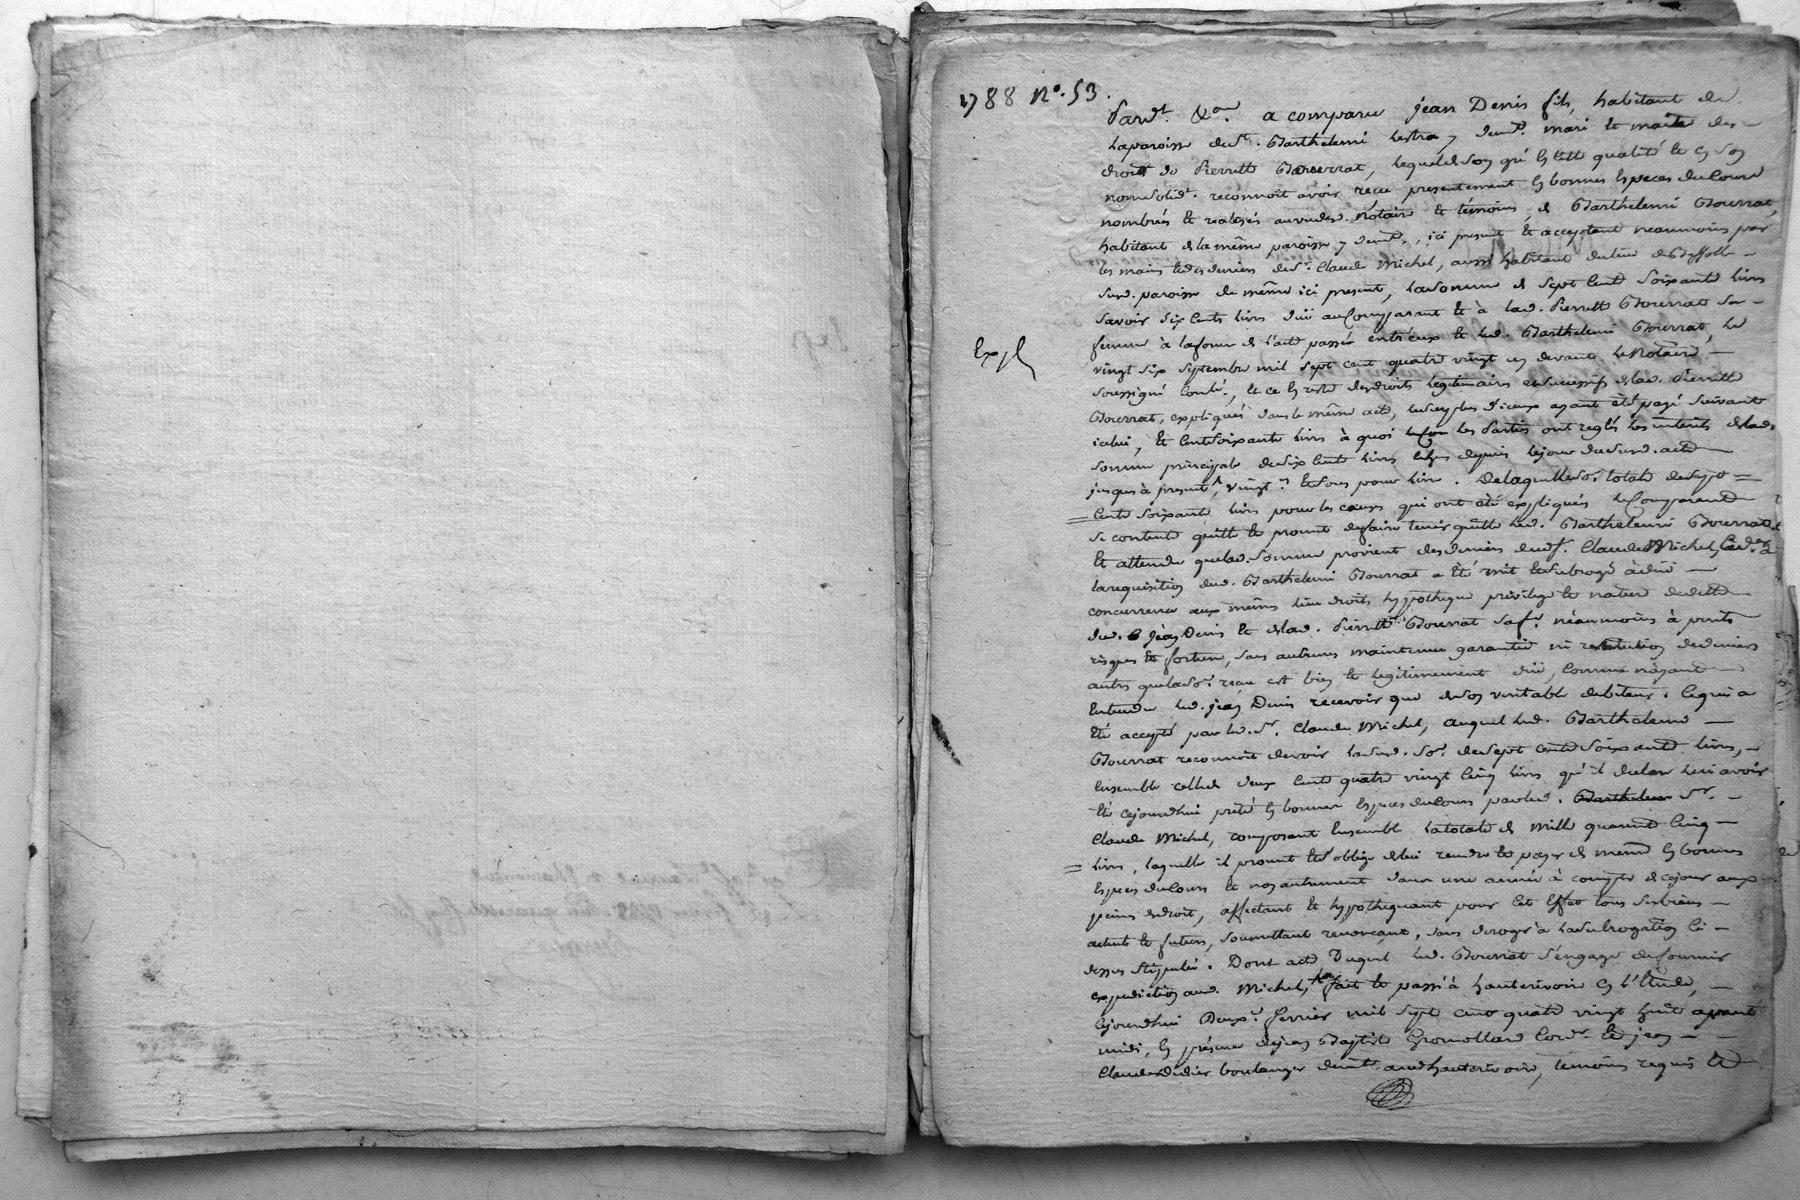 1788 N°. 53.
Pard.t &.a a comparu jean Denis fils, habitant de
la paroisse de St. Barthelemi Lestra, y demt. mari et maitre des
droits de Pierrette Bourrat, lequel de son gré en cette qualité et en son
nom solidt. reconnoit avoir recu presentement en bonnes especes du cours
nombrées et realisés au vu des notaire et témoins, de Barthelemi Bourrat,
habitant de la même paroisse y demt., ici present et acceptant neanmoins par
les mains et des deniers de Sr. Claude Michel, aussi habitant du lieu de
susd. paroisse de même ici present, la somme de sept cent soixante livres
savoir six cents livres düe au Comparant et à lad. Pierrette Bourrat sa
femme à la forme de l'acte passée entr'eux et led. Barthelemi Bourrat, le
vingt six septembre mil sept cent quatre vingt un devant le Notaire
Expé
soussigné Contlé., et ce en reste des droits legitimaires et successifs de lad. Pierrette
Bourrat, expliqués dans le même acte, le surplus d'iceux ayant été payé suivant
icelui, et cent soixante livres à quoi les Parties ont reglés les intérêts de lad.
somme principale de six cent livres echus depuis le jour du susd. acte
jusques à present, vingt.s et sous pour livre. De laquelle so.e totale de sept
cents soixante livres pour les causes qui ont été expliqués le Comparant
se contente quitte et promet de faire tenir quitte led. Barthelemi Bourrat
et attendu que lad. somme provient des deniers dud. Sr. Claude Michel,
la requisition dud. Barthelemi Bourrat a été mit et subrogé à düe
concurrence aux mêmes lieu droits hypotheque privilege et nature de dette
dud. jean Denis et de lad. Pierrette Bourrat sa fe. néanmoins à perils
risques et fortune, sans autrune maintenue garantie ni restitution de deniers
autres que la so.e recue est bien et legitimement düe, comme n'ayant
entendu led. jean Denis recevoir que de son veritable debiteur; ce qui a
été accepté par led. Sr. Claude Michel, auquel led. Barthelemi
Bourrat reconnoit devoir la susd. so.e de sept cents soixante livres,
ensemble celle de deux cents quatre vingt cinq livres qu'il declare lui avoir
été cejourdhui prêté en bonnes especes du cours par led. Sr.
Claude Michel, composant ensemble la totale de mille quarente cinq
livres, laquelle il promet et s'oblige de lui rendre et payer de même en bonnes
especes du cours et non autrement dans une année à compter de ce jour aux
peines de droit, affectant et hypothequant pour cet effet tous ses biens
actuels et futurs, soumettant renoncant, sans deroger à la subrogation ci
dessus stipulée. Dont acte Duquel led. Bourrat s'engage de fournir
expedition aud. Michel, fait et passé à hauterivoire en l'Etude,
cejourdhui Deuxe. fevrier mil sept cent quatre vingt huit avant
midi, en présence de jean Baptiste Gromollard Cordr. et jean
Claude Didier boulanger demt. aud hauterivoire, témoins requis et